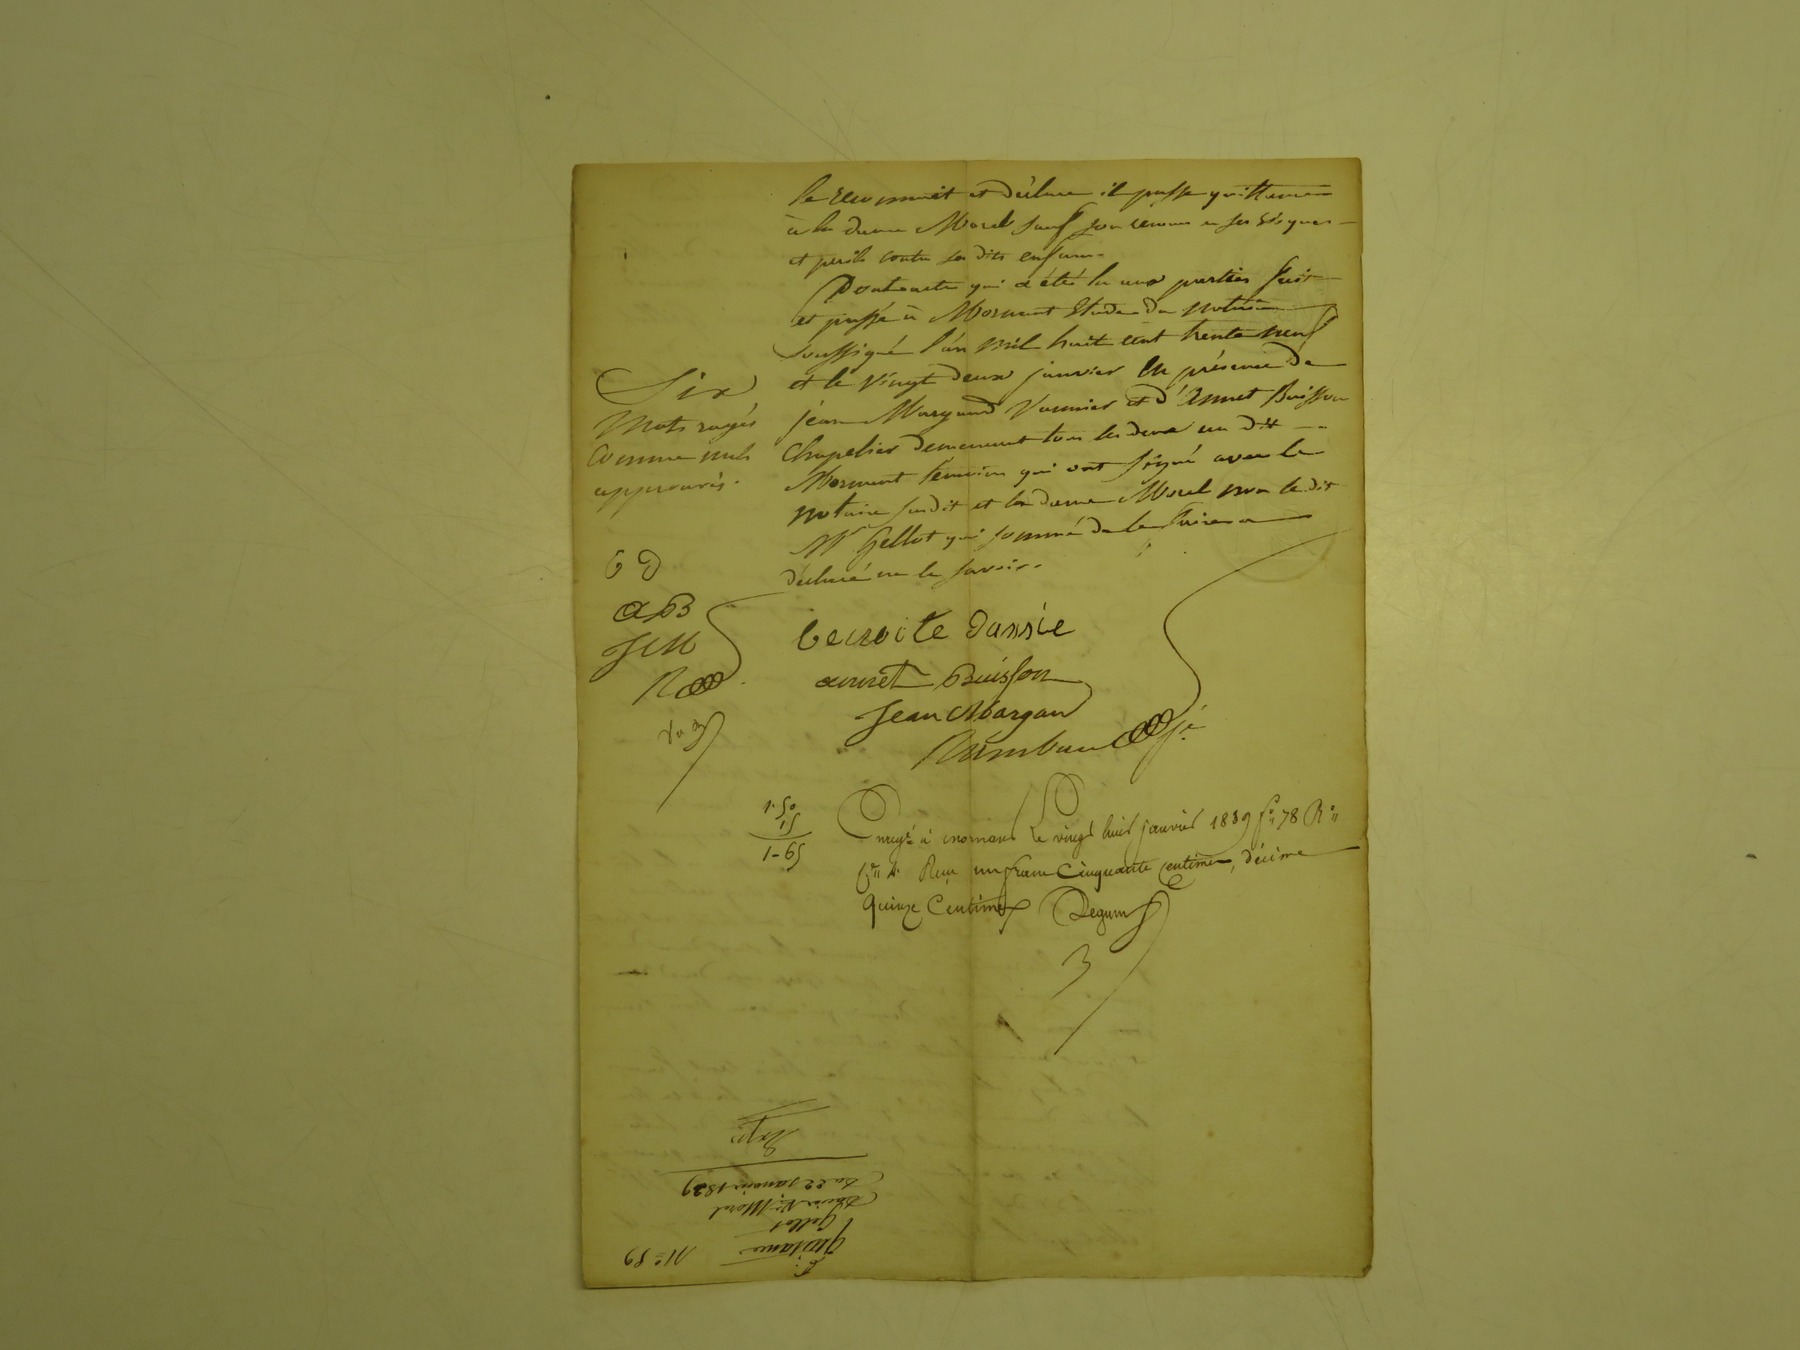 le reconnait et déclare il passe quittance
à la dame Morel sauf son recours a ses risques
et perils contre ses dits enfans.
Dont acte qui a été lu aux parties fait
et passé à Mornant Etude du notaire
soussigné l'an mil huit cent trente neuf
et le vingt deux janvier En présence de
jean Margand Vannier et d'Annet Buisson
Chapelier demeurant tous les deux au dit
Mornant temoins qui ont signé avec le
notaire susdit et la dame Morel non le dit
Mr Gellot qui sommé de le faire a
déclaré ne le savoir.
Six
Mots rayés
Comme nuls
approuvés.
B D
AB
JM
R
Benoite dassie
annet Buisson
Jean Margan
Raimbau
1.50
15
1-65
Enregé à mornant Le vingt huit janvier 1839 fo 78 Ro
Ce 4. Reçu un franc cinquante Centimes, décime
quinze Centimes
No 89
Quittance
Gellot
à Ve Morel
du 22 Janvier 1839
Exp